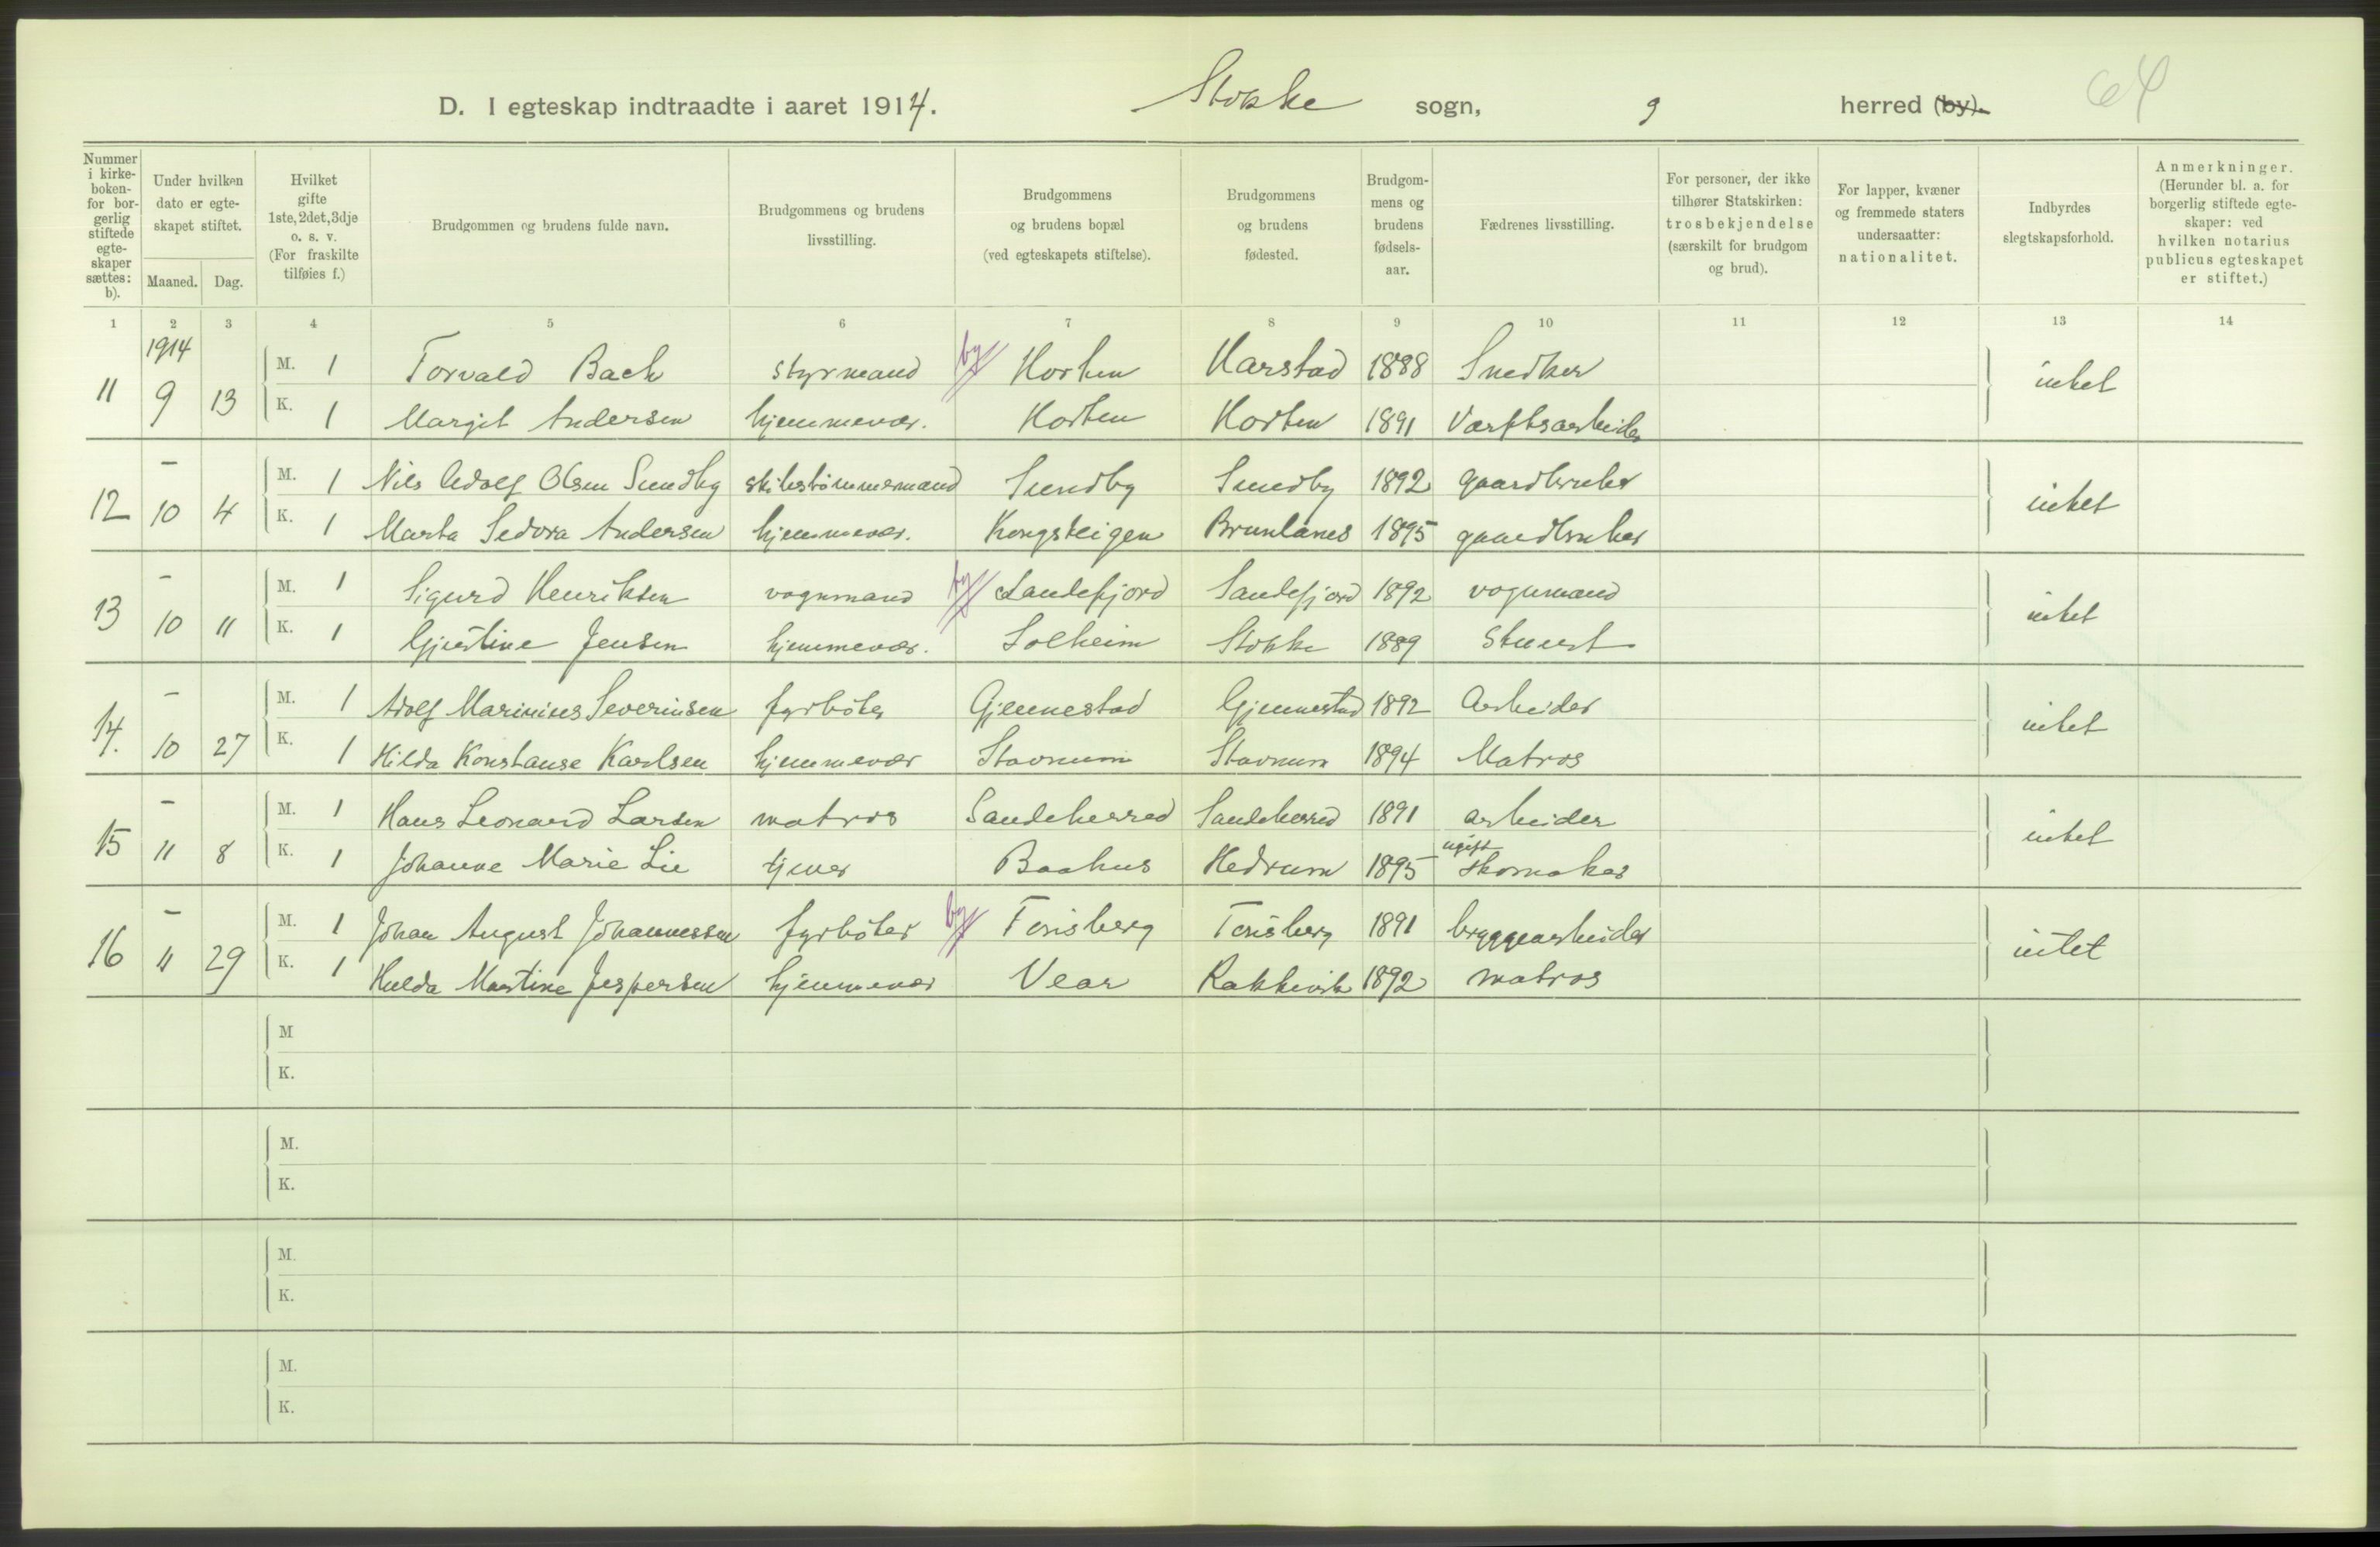 D. I egteskap indtraadte i aaret 1914. Stokke sogn, 9 herred (by). 64
Nummer i kirkeboken- for borgerlig stiftede egteskaper sættes: b).
Under hvilken dato er egteskapet stiftet.
Maaned. Dag.
Hvilket gifte 1ste, 2det, 3dje o. s. v. (For fraskilte tilføies f.)
Brudgommen og brudens fulde navn.
Brudgommens og brudens livsstilling.
Brudgommens og brudens bopæl (ved egteskapets stiftelse).
Brudgommens og brudens fødested.
Brudgommens og brudens fødselsaar.
Fædrenes livsstilling.
For personer, der ikke tilhører Statskirken: trosbekjendelse (særskilt for brudgom og brud).
For lapper, kvæner og fremmede staters undersaatter: nationalitet.
Indbyrdes slegtskapsforhold.
Anmerkninger. (Herunder bl. a. for borgerlig stiftede egteskaper: ved hvilken notarius publicus egteskapet er stiftet.)
1 2 3 4 5 6 7 8 9 10 11 12 13 14
1914
11 9 13 M. 1 Torvald Bach styrmand by Horten Harstad 1888 Snedker intet
K. 1 Margit Andersen hjemmevær. Horten Horten 1891 Værftsarbeider
12 – 10 4 M. 1 Nils Adolf Olsen Sundby skibstømmermand Sundby Sundby 1892 gaardbruker intet
K. 1 Marta Sedora Andersen hjemmevær. Kongsteigen Brunlanes 1895 gaardbruker
13 – 10 11 M. 1 Sigurd Henriksen vognmand by Sandefjord Sandefjord 1892 vognmand intet
K. 1 Gjustine Jensen hjemmevær. Solheim Stokke 1889 Stuert
14. – 10 27 M. 1 Adolf Marinius Severinsen fyrbøter Gjennestad Gjennestad 1892 Arbeider intet
K. 1 Hilda Konstanse Karlsen hjemmevær Stavnum Stavnum 1894 Matros
15 – 11 8 M. 1 Hans Leonard Larsen matros Sandeherred Sandeherred 1891 arbeider intet
K. 1 Johanne Marie Lie tjener Baahus Hedrum 1895 ugift skomaker
16 – 11 29 M. 1 Johan August Johannessen fyrbøter by Tønsberg Tønsberg 1891 bryggearbeider intet
K. 1 Hulda Martine Jespersen hjemmevær Vear Rakkevik 1892 matros
M
K.
M.
K.
M.
K.
M.
K.